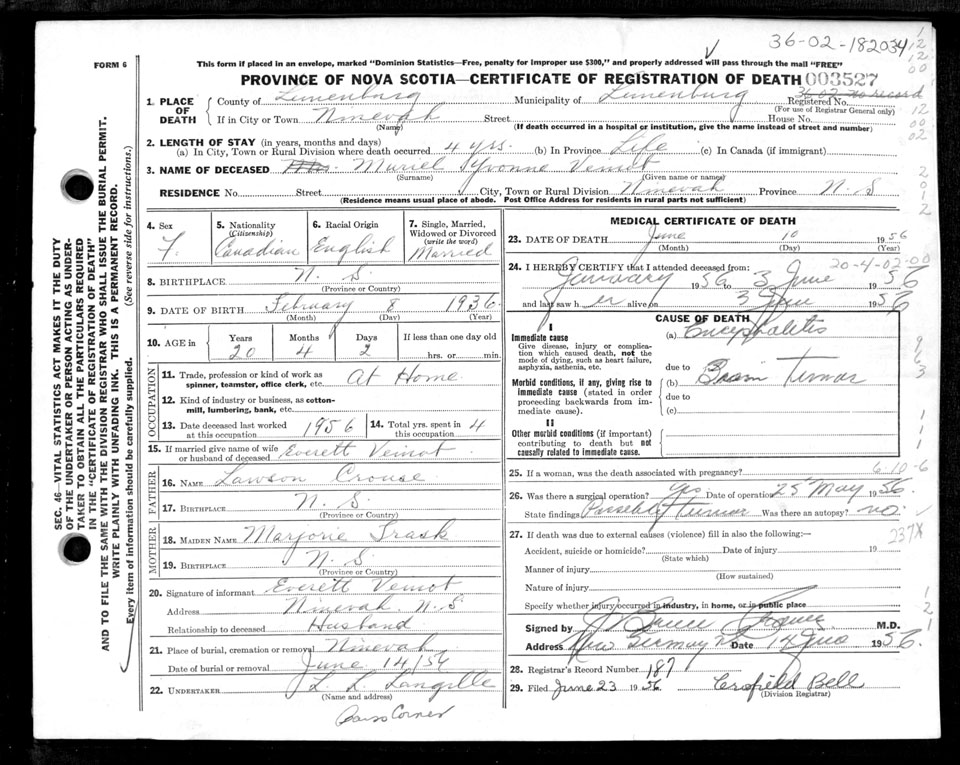 36-02-182034
FORM 6
This form if placed in an envelope, marked "Dominion Statistics—Free, penalty for improper use $300," and properly addressed will pass through the mail "FREE"
PROVINCE OF NOVA SCOTIA—CERTIFICATE OF REGISTRATION OF DEATH 003527
1. PLACE OF DEATH
County of Lunenburg Municipality of Lunenburg Registered No. 36-02 no record
(For use of Registrar General only)
If in City or Town Ninevah Street House No.
(Name) (If death occurred in a hospital or institution, give the name instead of street and number)
2. LENGTH OF STAY (in years, months and days)
(a) In City, Town or Rural Division where death occurred 4 yrs. (b) In Province Life (c) In Canada (if immigrant)
3. NAME OF DECEASED Mrs. Muriel Yvonne Veinot
(Surname) (Given name or names)
RESIDENCE No. Street City, Town or Rural Division Ninevah Province N. S
(Residence means usual place of abode. Post Office Address for residents in rural parts not sufficient)
4. Sex F.
5. Nationality (Citizenship) Canadian
6. Racial Origin English
7. Single, Married, Widowed or Divorced (write the word) Married
8. BIRTHPLACE N. S.
(Province or Country)
9. DATE OF BIRTH February 8 1936
(Month) (Day) (Year)
10. AGE in Years Months Days If less than one day old
20 4 2 hrs. or min.
OCCUPATION
11. Trade, profession or kind of work as spinner, teamster, office clerk, etc. At Home
12. Kind of industry or business, as cotton-mill, lumbering, bank, etc.
13. Date deceased last worked at this occupation 1956 14. Total yrs. spent in this occupation 4
15. If married give name of wife or husband of deceased Everett Veinot
FATHER
16. NAME Lawson Crouse
17. BIRTHPLACE N. S
(Province or Country)
MOTHER
18. MAIDEN NAME Marjorie Trask
19. BIRTHPLACE N. S
(Province or Country)
20. Signature of informant Everett Veinot
Address Ninevah. N. S
Relationship to deceased Husband
21. Place of burial, cremation or removal Ninevah
Date of burial or removal June 14/56
22. UNDERTAKER L. L. Langille
(Name and address)
Corner
MEDICAL CERTIFICATE OF DEATH
23. DATE OF DEATH June 10 1956
(Month) (Day) (Year)
20-4-02-00
24. I HEREBY CERTIFY that I attended deceased from:
January 1956 to 3 June 1956
and last saw her alive on 3 June 1956
CAUSE OF DEATH
I
Immediate cause
Give disease, injury or complication which caused death, not the mode of dying, such as heart failure, asphyxia, asthenia, etc.
(a) Encephaletis
due to
Morbid conditions, if any, giving rise to immediate cause (stated in order proceeding backwards from immediate cause).
(b) Brain Tumor
due to
(c)
II
Other morbid conditions (if important) contributing to death but not causally related to immediate cause.
25. If a woman, was the death associated with pregnancy? 6-10-6
26. Was there a surgical operation? Yes Date of operation 25 May 1956.
State findings Possibly Tumor Was there an autopsy? no.
27. If death was due to external causes (violence) fill in also the following:— 237X
Accident, suicide or homicide? Date of injury 19
(State which)
Manner of injury
(How sustained)
Nature of injury
Specify whether injury occurred in industry, in home, or in public place
Signed by M.D.
Address New Germany NS Date 14 June 1956.
28. Registrar's Record Number 187
29. Filed June 23 1956 Crofield Bell
(Division Registrar)
SEC. 46—VITAL STATISTICS ACT MAKES IT THE DUTY
OF THE UNDERTAKER OR PERSON ACTING AS UNDER-
TAKER TO OBTAIN ALL THE PARTICULARS REQUIRED
IN THE "CERTIFICATE OF REGISTRATION OF DEATH"
AND TO FILE THE SAME WITH THE DIVISION REGISTRAR WHO SHALL ISSUE THE BURIAL PERMIT.
WRITE PLAINLY WITH UNFADING INK. THIS IS A PERMANENT RECORD.
Every item of information should be carefully supplied. (See reverse side for instructions.)